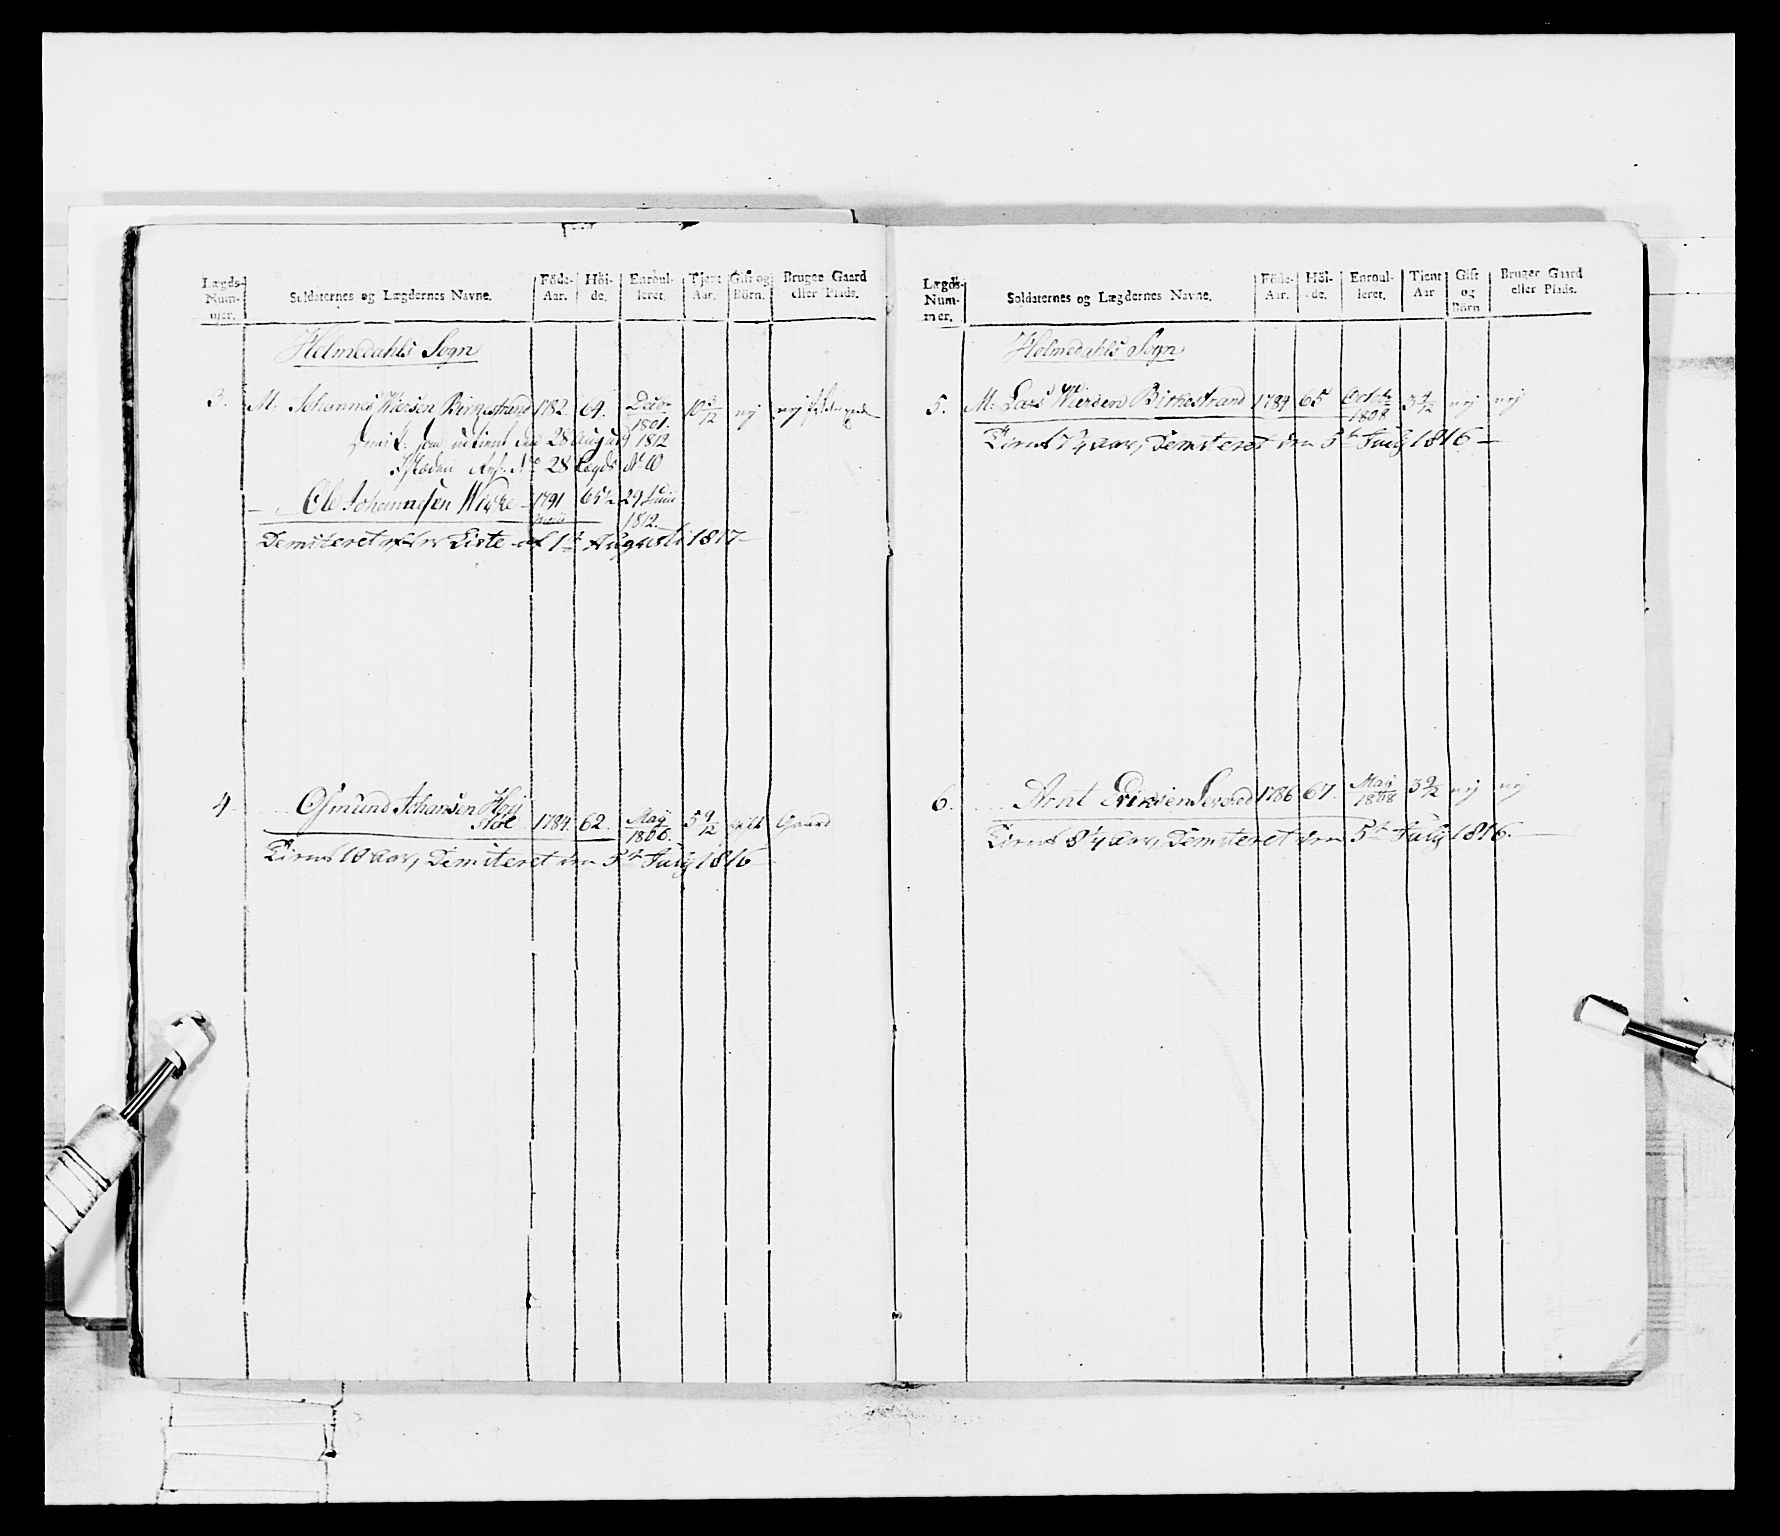 Lægds-Num-mer. Soldaternes og Lægdernes Navne. Föde-Aar. Höi-de. Enroul-leret. Tjent Aar. Gift og Börn. Bruger Gaard eller Plads.
Holmedahls Sogn
3. M. Johannes Wiersen Birkestrand 1782. 64. Decb. 1801. 10 3/12 nej nej
som udtient den 28 August 1812
Istæden No 28 Lægd No 10
— Ole Johannesen Wiske 1791 65½ 29 Juni 1812.
Demiteret efter Liste af 1te Augusti 1817
4. Osmund Johansen Høy 1784. 62. May 1806. 5 9/12 gift Gaard
Tient 10 aar, Demiteret den 5te July 1816
Lægds-Num-mer. Soldaternes og Lægdernes Navne. Föde-Aar. Höi-de. Enroul-leret. Tjent Aar Gift og Börn Bruger Gaard eller Plads.
Holmedahls Sogn
5. M. Lars Wiersen Birkestrand 1784 65 Octbr 1808 3 4/12 nej nej
Tient 7¾ aar, Demiteret den 5te July 1816 —
6. Arnt Eriksen 1786 67. May 1808 3 9/12 nej nej
Tient 8¼ aar, Demiteret den 5te July 1816. —